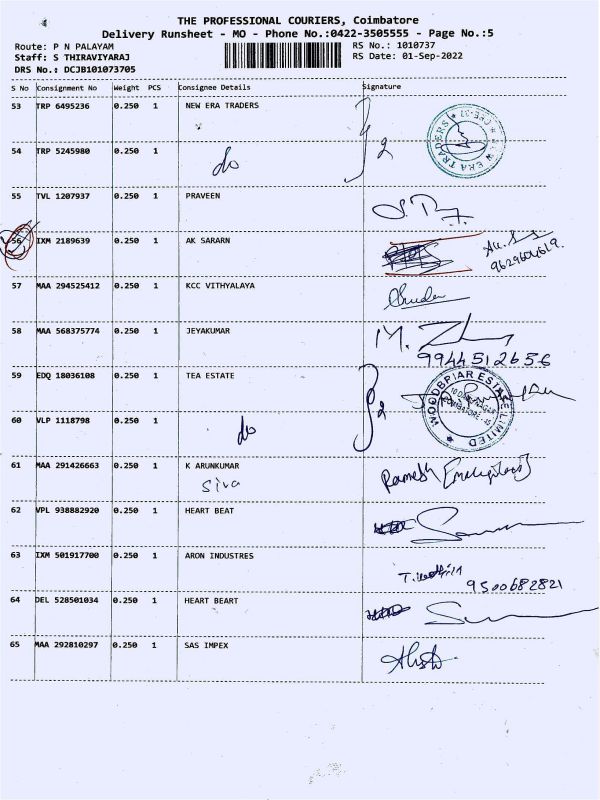 THE PROFESSIONAL COURIERS, Coimbatore
Delivery Runsheet - MO - Phone No.:0422-3505555 - Page No.:5
Route: P N PALAYAM
RS No.: 1010737
Staff: S THIRAVIYARAJ
RS Date: 01-Sep-2022
DRS No.: DCJB101073705
S No Consignment No Weight PCS Consignee Details Signature
53 TRP 6495236 0.250 1 NEW ERA TRADERS
2
NEW ERA TRADERS
54 TRP 5245980 0.250 1
do
55 TVL 1207937 0.250 1 PRAVEEN
56 IXM 2189639 0.250 1 AK SARARN
57 MAA 294525412 0.250 1 KCC VITHYALAYA
58 MAA 568375774 0.250 1 JEYAKUMAR
9944512656
59 EDQ 18036108 0.250 1 TEA ESTATE
2
WOODBRIAR ESTATE LIMITED
60 VLP 1118798 0.250 1
do
61 MAA 291426663 0.250 1 K ARUNKUMAR
Siva
Ramesh
62 VPL 938882920 0.250 1 HEART BEAT
63 IXM 501917700 0.250 1 ARON INDUSTRES
9500682821
64 DEL 528501034 0.250 1 HEART BEART
65 MAA 292810297 0.250 1 SAS IMPEX